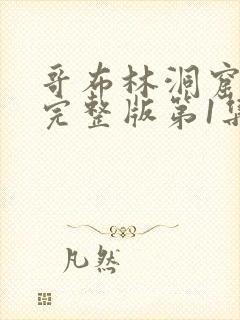 哥布林洞窟
完整版第1集
凡然